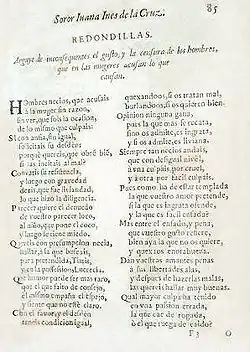 Soror Iuana Ines de la Cruz. 85
REDONDILLAS.
Arguye de inconsequentes el gusto, y la censura de los hombres,
que en las mugeres acusan lo que
causan.
Hombres necios, que acusais
à la muger sin razon,
sin ver, que sois la ocasion,
de lo mismo que culpais:
Si con ansia sin igual,
solicitais su desden
porquè quereis, que obrē biē,
si las incitais al mal?
Convatis su resistencia,
y luego con gravedad
dezis, que fue liviandad,
lo que hizo la diligencia.
Parecer quiere el denuedo
de vuestro parecer loco,
al niño, que pone el coco,
y luego le tiene miedo.
Quereis con presumpcion necia,
hallar, à la que buscais,
para pretendida, Thais,
y en la possession, Lucrecia.
Què humor puede ser mas raro,
que el que falto de consejo,
èl mismo empaña el espejo,
y siente que no estè claro.
Con el favor, y el desden
teneis condicion igual,
quexandoos, si os tratan mal,
burlandoos, si os quieren bien.
Opinion ninguna gana,
pues la que mas se recata,
sino os admite, es ingrata,
y si os admite, es liviana.
Siempre tan necios andais,
que con desigual nivel,
à vna culpais por cruel,
y à otra por facil culpais.
Pues como ha de estar templada
la que vuestro amor pretende,
si la que es ingrata ofende,
y la que es facil enfada?
Mas entre el enfado, y pena,
que vuestro gusto refiere,
bien aya la que no os quiere,
y quexaos enorabuena.
Dan vuestras amantes penas
à sus libertades alas,
y despues de hazerlas malas,
las quereis hallar muy buenas.
Qual mayor culpa ha tenido
en vna passion errada,
la que cae de rogada,
ò el que ruega de caìdo?
F 3 O